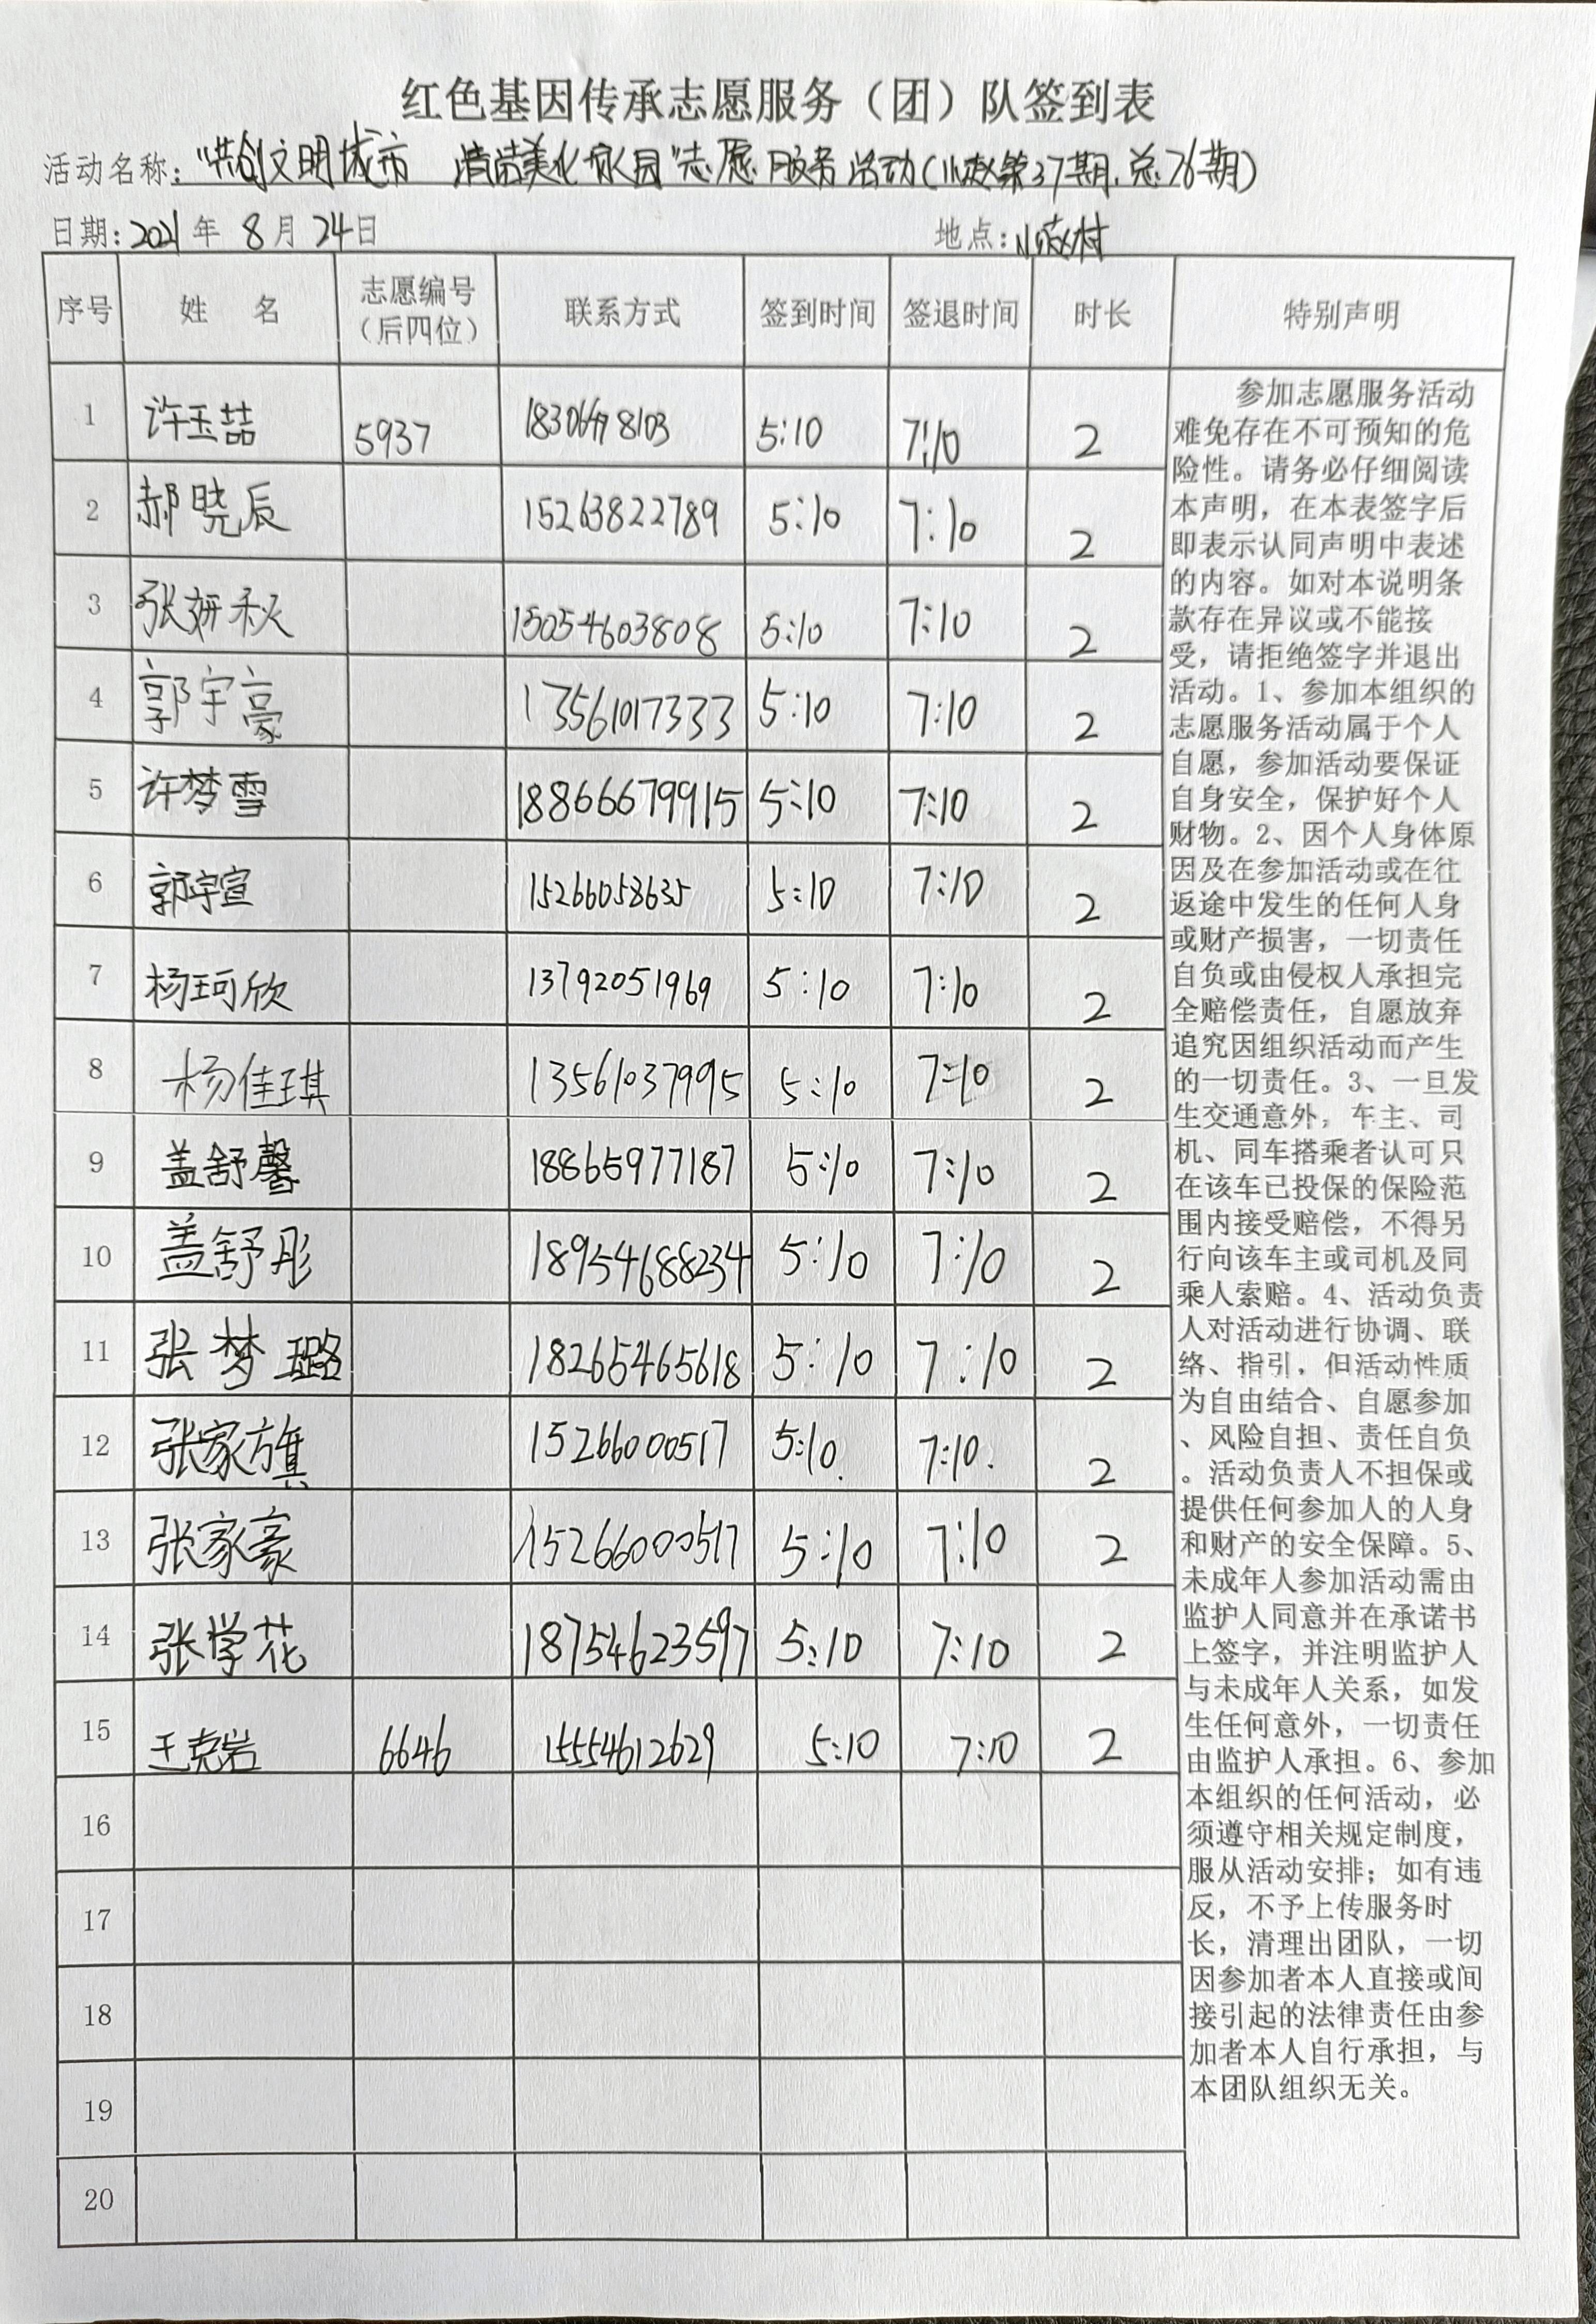 红色基因传承志愿服务（团）队签到表
活动名称：“共创文明城市 清洁美化家园”志愿服务活动（小赵第37期.总76期）
日期：2021年 8月 24日 地点：小赵村
序号 姓 名 志愿编号（后四位） 联系方式 签到时间 签退时间 时长 特别声明
1 许玉喆 5937 5:10 7:10 2
2 郝晓辰 15263822789 5:10 7:10 2
3 张妍秋 15054603808 5:10 7:10 2
4 郭宇豪 13561017333 5:10 7:10 2
5 许梦雪 18866679915 5:10 7:10 2
6 郭宇宣 15266058635 5:10 7:10 2
7 杨珂欣 13792051969 5:10 7:10 2
8 杨佳琪 13561037995 5:10 7:10 2
9 盖舒馨 18865977187 5:10 7:10 2
10 盖舒彤 18954688234 5:10 7:10 2
11 张梦璐 18265465618 5:10 7:10 2
12 张家旗 15266000517 5:10. 7:10. 2
13 张家豪 15266000517 5:10 7:10 2
14 张学花 18754623597 5:10 7:10 2
15 王克岩 6646 15554612629 5:10 7:10 2
16
17
18
19
20
参加志愿服务活动
难免存在不可预知的危
险性。请务必仔细阅读
本声明，在本表签字后
即表示认同声明中表述
的内容。如对本说明条
款存在异议或不能接
受，请拒绝签字并退出
活动。1、参加本组织的
志愿服务活动属于个人
自愿，参加活动要保证
自身安全，保护好个人
财物。2、因个人身体原
因及在参加活动或在往
返途中发生的任何人身
或财产损害，一切责任
自负或由侵权人承担完
全赔偿责任，自愿放弃
追究因组织活动而产生
的一切责任。3、一旦发
生交通意外，车主、司
机、同车搭乘者认可只
在该车已投保的保险范
围内接受赔偿，不得另
行向该车主或司机及同
乘人索赔。4、活动负责
人对活动进行协调、联
络、指引，但活动性质
为自由结合、自愿参加
、风险自担、责任自负
。活动负责人不担保或
提供任何参加人的人身
和财产的安全保障。5、
未成年人参加活动需由
监护人同意并在承诺书
上签字，并注明监护人
与未成年人关系，如发
生任何意外，一切责任
由监护人承担。6、参加
本组织的任何活动，必
须遵守相关规定制度，
服从活动安排；如有违
反，不予上传服务时
长，清理出团队，一切
因参加者本人直接或间
接引起的法律责任由参
加者本人自行承担，与
本团队组织无关。